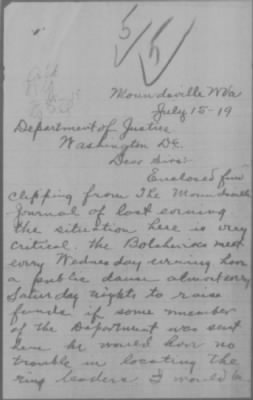 Moundsville W Va
July 15-19
Department of Justice
Washington DC.
Dear Sirs:
Enclosed find
clipping from The Moundsville
Journal of last evening
the situation here is very
critical. the Bolshevics meet
every Wednesday evening have
a public dance almost every
Saturday nights to raise
funds if some member
of the Department was sent
here he would have no
trouble in locating the
ring leaders I would be